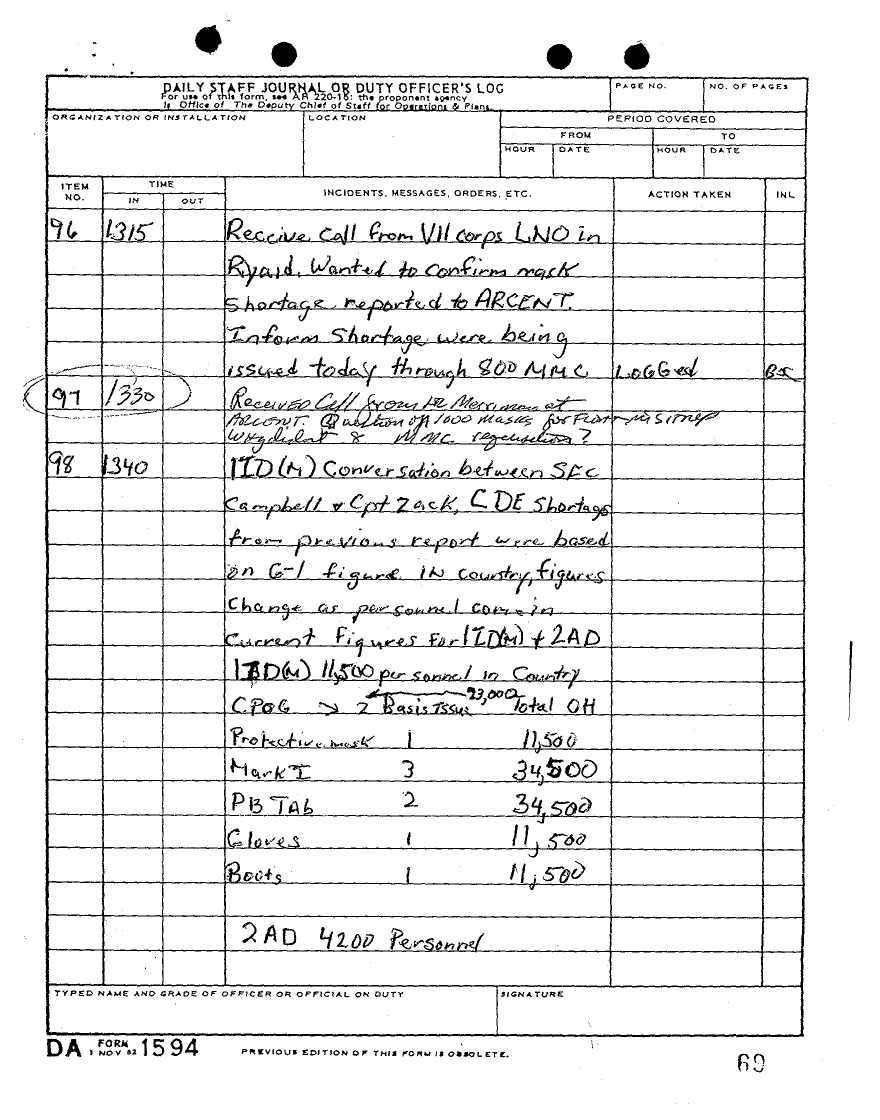 DAILY STAFF JOURNAL OR DUTY OFFICER'S LOG
For use of this form, see AR 220-15; the proponent agency
is Office of The Deputy Chief of Staff for Operations & Plans.
PAGE NO.
NO. OF PAGES
ORGANIZATION OR INSTALLATION
LOCATION
PERIOD COVERED
FROM
TO
HOUR DATE HOUR DATE
ITEM NO.
TIME
IN OUT
INCIDENTS, MESSAGES, ORDERS, ETC.
ACTION TAKEN
INL
96 1315 Receive Call from VII corps LNO in
Ryaid. Wanted to confirm mask
Shortage reported to ARCENT.
Inform Shortage were being
issued today through 800 MMC LOGGed
97 1330 Received Call from Merriman at
ARCENT. Question of 1000 masks for
& MMC requisition?
98 1340 1ID(M) Conversation between SFC
Campbell & Cpt Zack, CDE Shortage
from previous report were based
on G-1 figure in country, figures
Change as personnel come in
Current Figures For 1ID(M) & 2AD
1ID(M) 11,500 personnel in Country
23,000
CPOG → 2 Basis Issue Total OH
Protective mask 1 11,500
Mark I 3 34,500
PB TAb 2 34,500
Gloves 1 11,500
Boots 1 11,500
2AD 4200 Personnel
TYPED NAME AND GRADE OF OFFICER OR OFFICIAL ON DUTY
SIGNATURE
DA FORM 1 NOV 62 1594
PREVIOUS EDITION OF THIS FORM IS OBSOLETE.
69